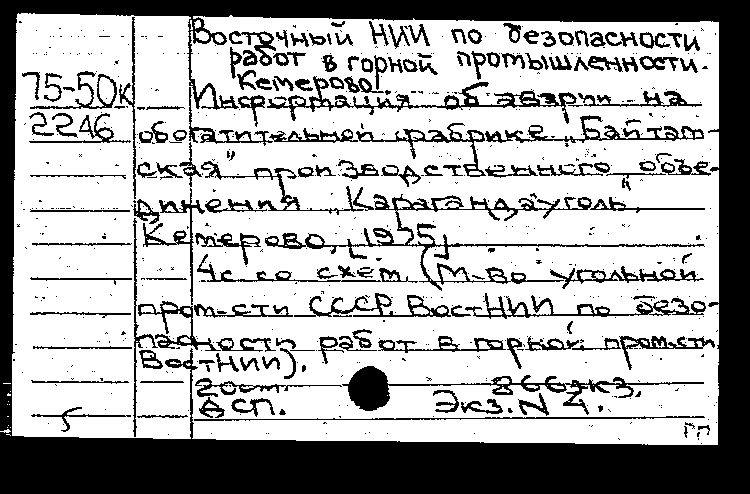 Восточный НИИ по безопасности
работ в горной промышленности.
Кемерово.
75-50к
Информация об аварии на
2246
обогатительной фабрике „Байтам-
ская" производственного объе-
динения „Карагандауголь".
Кемерово, [1975]
4с со схем. (М-во угольной
пром-сти СССР. ВостНИИ по безо-
пасности работ в горной пром-сти.
ВостНИИ).
20см. 866экз.
ДСП. Экз. N 4.
5
ГП